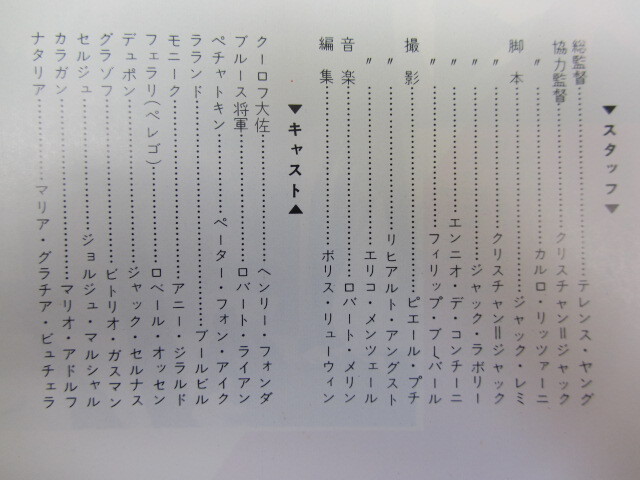 ▼スタッフ▼
総監督……………テレンス・ヤング
協力監督……………クリスチャン＝ジャック
〃……………カルロ・リッツァーニ
脚本……………ジャック・レミ
〃……………クリスチャン＝ジャック
〃……………ジャック・ラボリー
〃……………エンニオ・デ・コンチーニ
〃……………フィリップ・ブールバール
撮影……………ピエール・プチ
〃……………リヒアルト・アングスト
〃……………エリコ・メンツェール
音楽……………ロバート・メリン
編集……………ボリス・リューウィン
▼キャスト▲
クーロフ大佐……………ヘンリー・フォンダ
ブルース将軍……………ロバート・ライアン
ペチャトキン……………ペーター・フォン・アイク
ラランド……………ブールビル
モニーク……………アニー・ジラルド
フェラリ(ペレゴ)……………ロベール・オッセン
デュポン……………ジャック・セルナス
グラゾフ……………ビトリオ・ガスマン
セルジュ……………ジョルジュ・マルシャル
カラガン……………マリオ・アドルフ
ナタリア……………マリア・グラチア・ビュチェラ